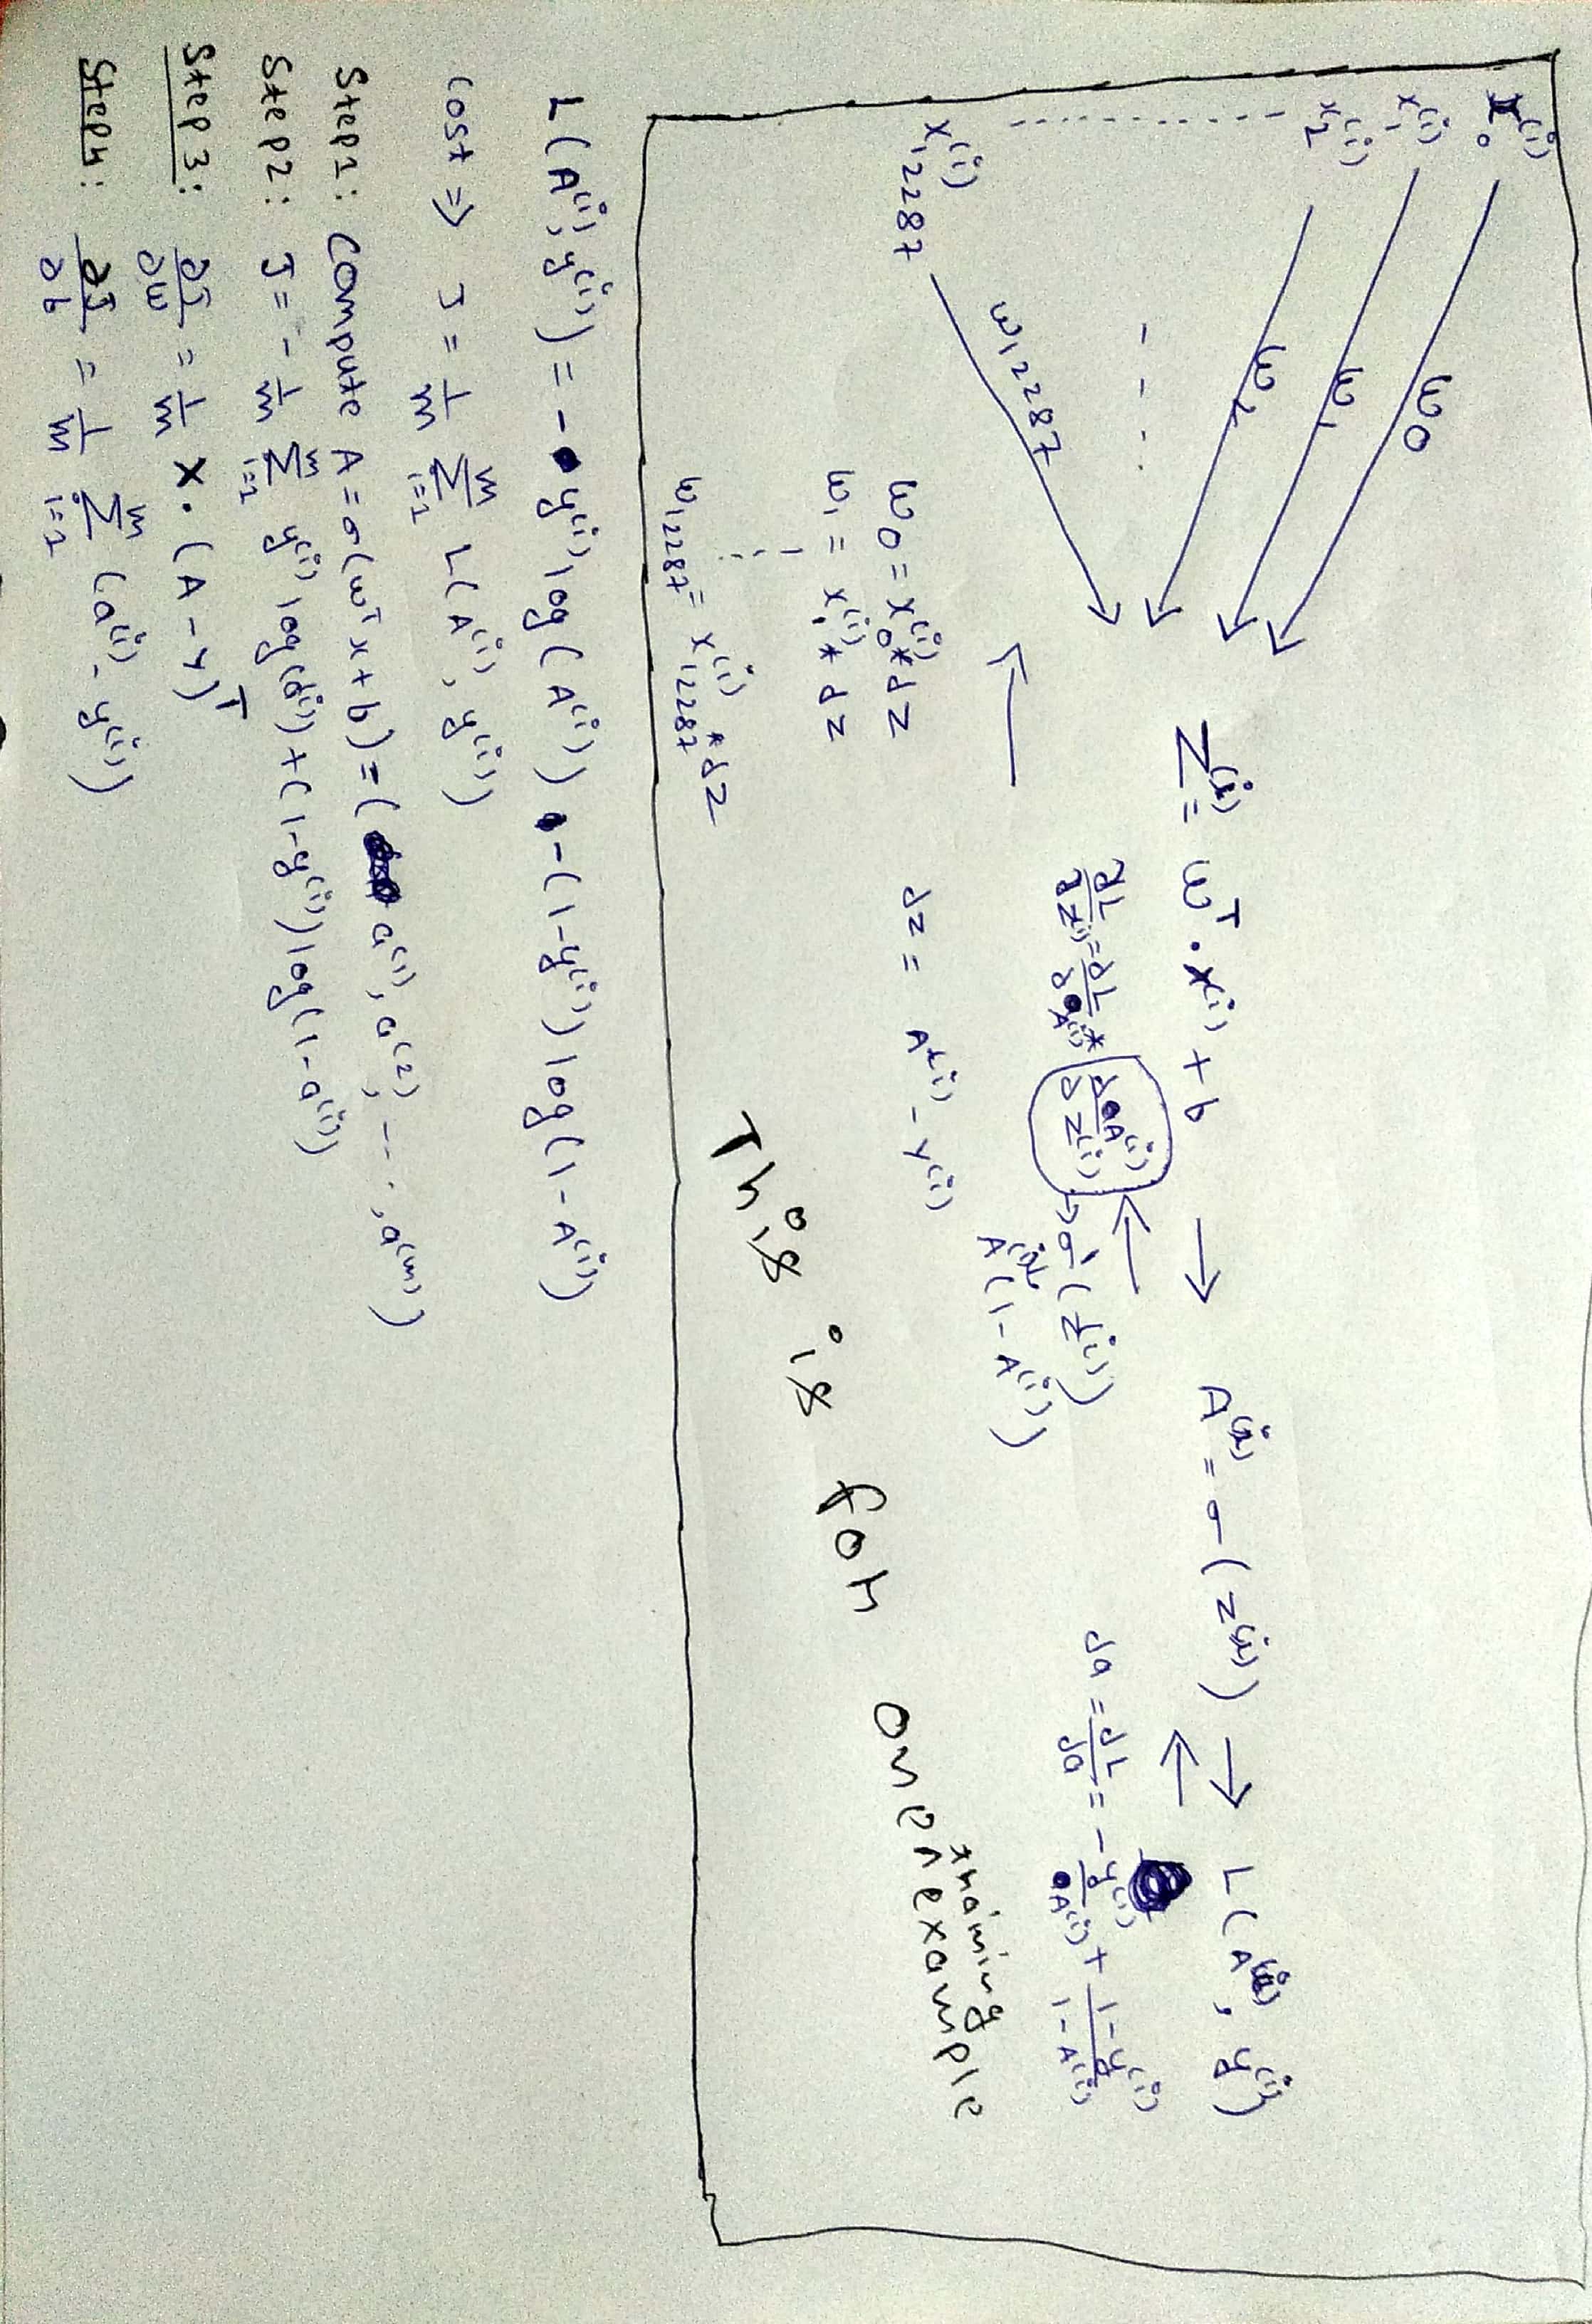 x₀⁽ⁱ⁾
x₁⁽ⁱ⁾
x₂⁽ⁱ⁾
x₁₂₂₈₇⁽ⁱ⁾
ω₀
ω₁
ω₂
ω₁₂₂₈₇
Z⁽ⁱ⁾ = ωᵀ · x⁽ⁱ⁾ + b → A⁽ⁱ⁾ = σ(Z⁽ⁱ⁾) → L(A⁽ⁱ⁾, y⁽ⁱ⁾)
∂L/∂Z⁽ⁱ⁾ = ∂L/∂A⁽ⁱ⁾ * ∂A⁽ⁱ⁾/∂Z⁽ⁱ⁾ → σ'(Z⁽ⁱ⁾)
A⁽ⁱ⁾(1 - A⁽ⁱ⁾)
da = dL/da = -y⁽ⁱ⁾/A⁽ⁱ⁾ + 1-y⁽ⁱ⁾/1-A⁽ⁱ⁾
dz = A⁽ⁱ⁾ - Y⁽ⁱ⁾
ω₀ = x₀⁽ⁱ⁾ * dz
ω₁ = x₁⁽ⁱ⁾ * dz
ω₁₂₂₈₇ = x₁₂₂₈₇⁽ⁱ⁾ * dz
This is for one training example
L(A⁽ⁱ⁾, y⁽ⁱ⁾) = - y⁽ⁱ⁾ log(A⁽ⁱ⁾) - (1-y⁽ⁱ⁾) log(1-A⁽ⁱ⁾)
Cost ⇒ J = 1/m Σᵢ₌₁ᵐ L(A⁽ⁱ⁾, y⁽ⁱ⁾)
Step1: Compute A = σ(ωᵀx + b) = (a⁽¹⁾, a⁽²⁾, ...., a⁽ᵐ⁾)
Step2: J = - 1/m Σᵢ₌₁ᵐ y⁽ⁱ⁾ log(a⁽ⁱ⁾) + (1-y⁽ⁱ⁾) log(1-a⁽ⁱ⁾)
Step3: ∂J/∂ω = 1/m X · (A - Y)ᵀ
Step4: ∂J/∂b = 1/m Σᵢ₌₁ᵐ (a⁽ⁱ⁾ - y⁽ⁱ⁾)